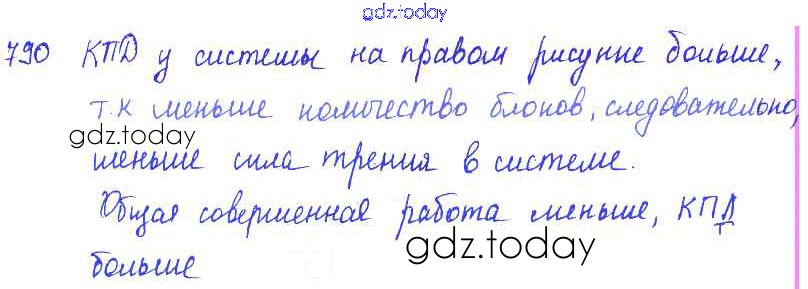 gdz.today
790 КПД у системы на правом рисунке больше,
т.к меньше количество блоков, следовательно,
gdz.today
меньше сила трения в системе.
Общая совершенная работа меньше, КПД
gdz.today
больше